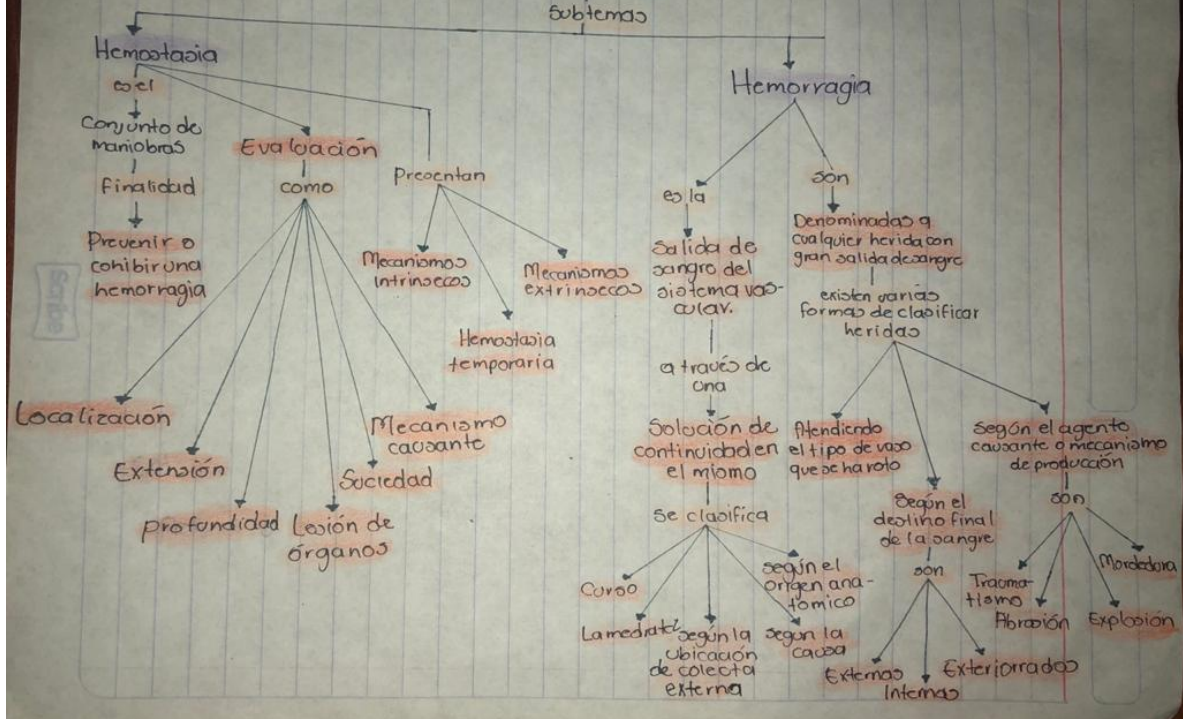 Subtemas
Hemostasia
es el
Conjunto de
maniobras
Finalidad
Prevenir o
cohibir una
hemorragia
Evaluación
como
Localización
Extensión
Profundidad
Lesión de
órganos
Suciedad
Mecanismo
causante
Presentan
Mecanismos
intrinsecos
Hemostasia
temporaria
Mecanismos
extrinsecos
Hemorragia
es la
Salida de
sangre del
sistema vas-
cular.
a través de
una
Solución de
continuidad en
el mismo
Se clasifica
Curso
según la
ubicación
de colecta
externa
según la
causa
según el
origen ana-
tomico
son
Denominadas a
cualquier herida con
gran salida de sangre
existen varias
formas de clasificar
heridas
Atendiendo
el tipo de vaso
que se ha roto
Según el
destino final
de la sangre
son
Externas
Internas
Exteriorrados
según el agente
causante o mecanismo
de producción
son
Trauma-
tismo
Abrasión
Explosión
Mordedura
Scribe